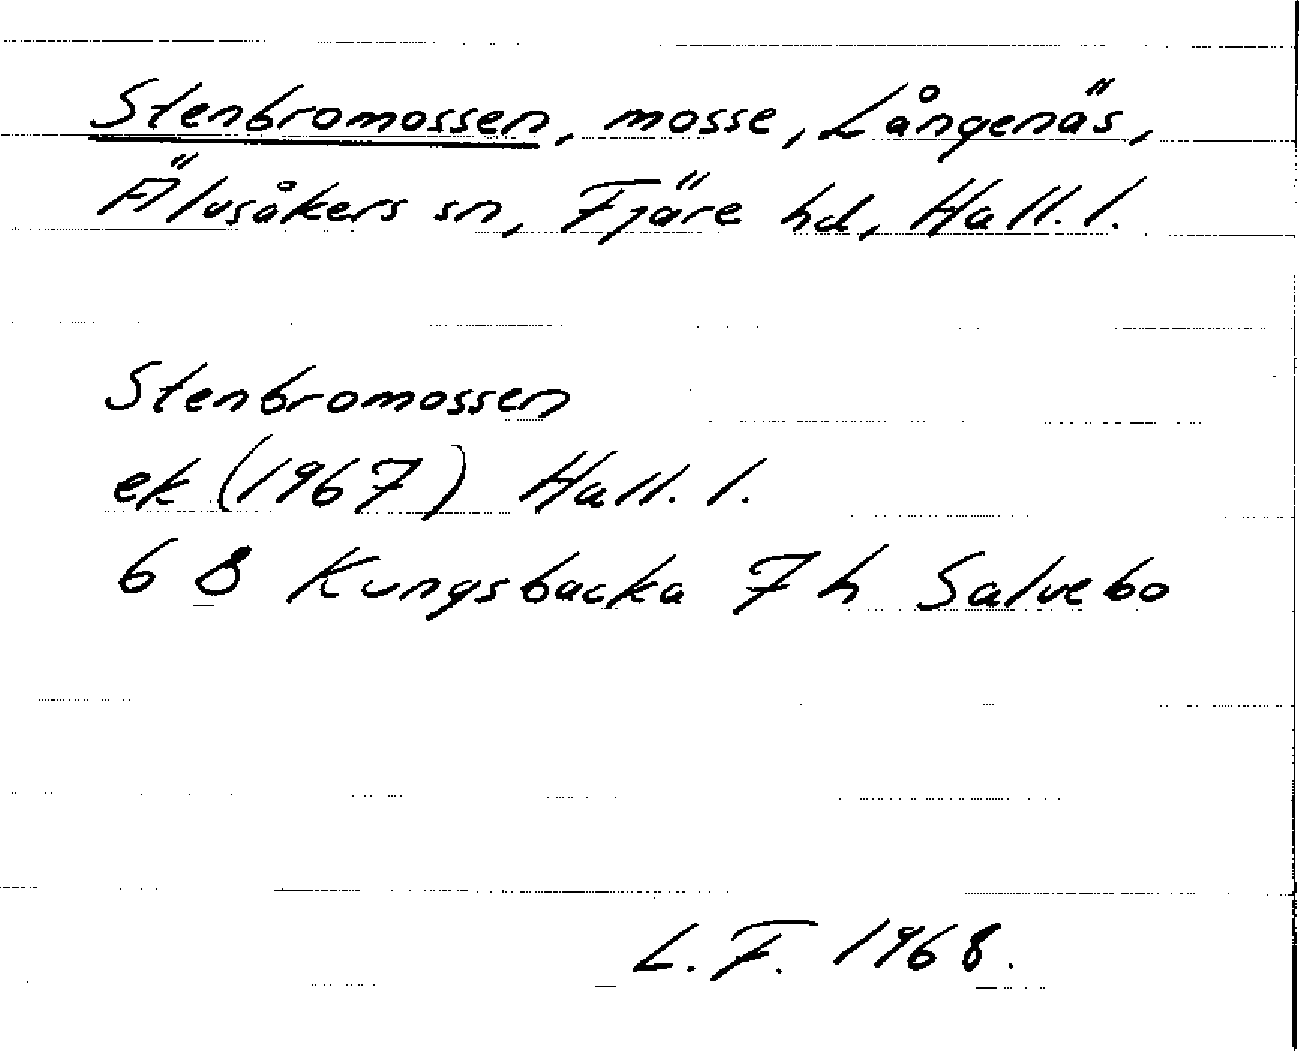 Stenbromossen, mosse, Långenäs,
Älvsåkers sn, Fjäre hd, Hall. l.
Stenbromossen
ek (1967) Hall. l.
6 B Kungsbacka 7 h Salvebo
L. F. 1968.